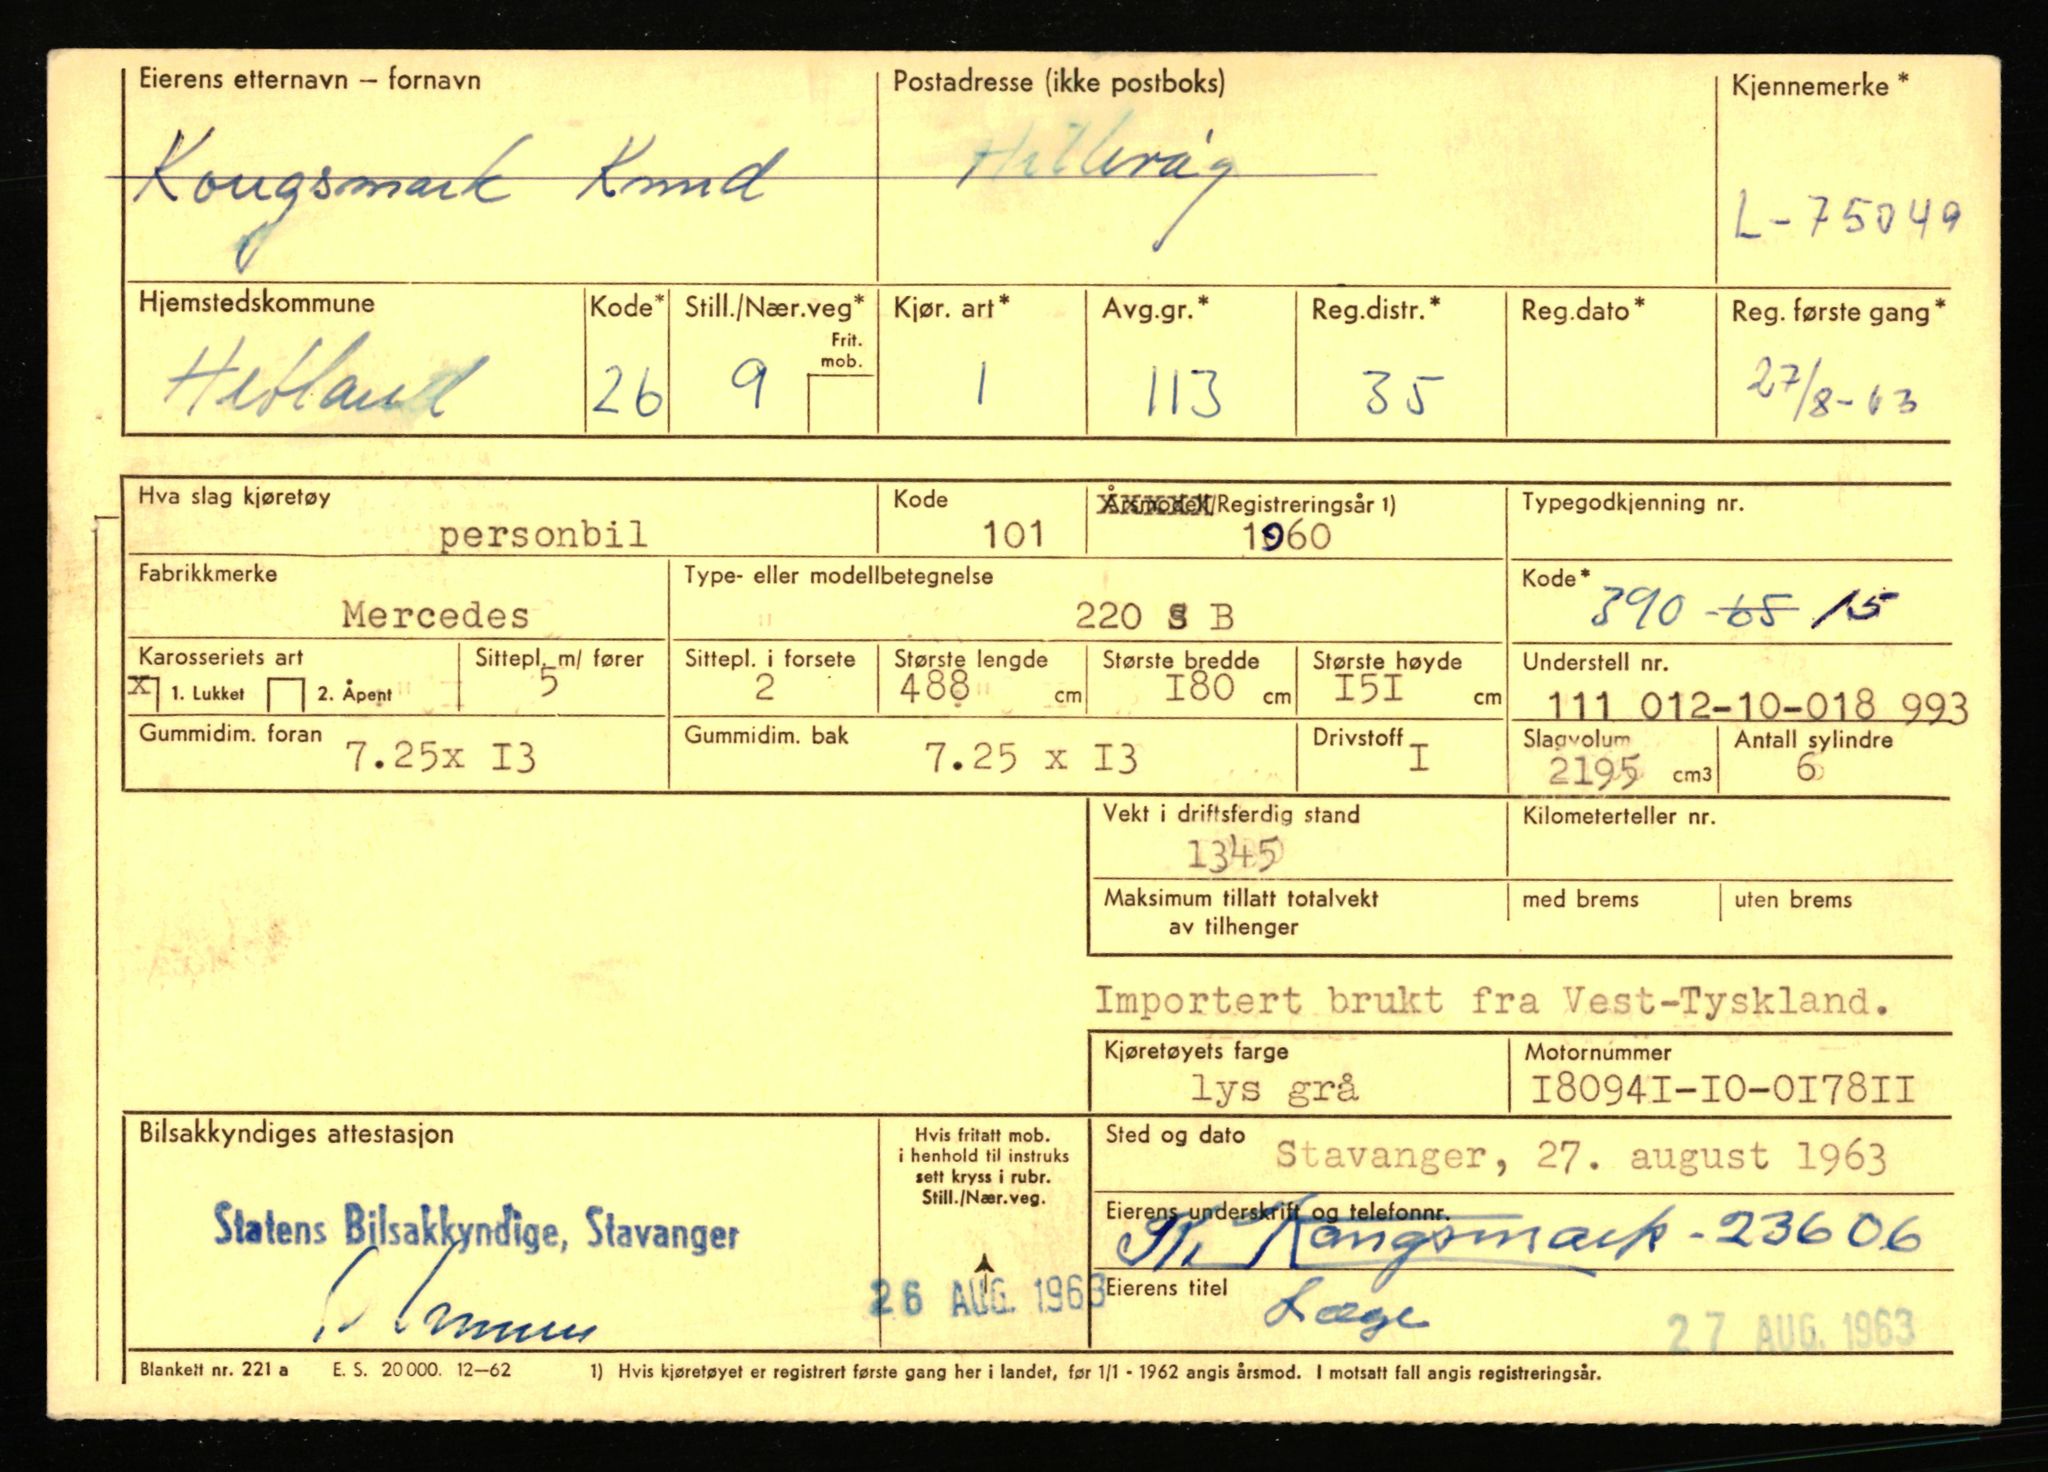 Eierens etternavn – fornavn
Postadresse (ikke postboks)
Kjennemerke*
Kongsmark Knud
Hillevåg
L-75049
Hjemstedskommune
Kode*
Still./Nær.veg*
Kjør. art*
Avg.gr.*
Reg.distr.*
Reg.dato*
Reg. første gang*
Frit.
mob.
Hetland
26
9
1
113
35
27/8-63
Hva slag kjøretøy
Kode
Årsmodell/Registreringsår 1)
Typegodkjenning nr.
personbil
101
1960
Fabrikkmerke
Type- eller modellbetegnelse
Kode*
Mercedes
220 S B
390 -65 15
Karosseriets art
Sittepl. m/ fører
Sittepl. i forsete
Største lengde
Største bredde
Største høyde
Understell nr.
x 1. Lukket
2. Åpent
5
2
488 cm
I80 cm
I5I cm
111 012-10-018 993
Gummidim. foran
7.25x I3
Gummidim. bak
7.25 x I3
Drivstoff
I
Slagvolum
2195 cm3
Antall sylindre
6
Vekt i driftsferdig stand
1345
Kilometerteller nr.
Maksimum tillatt totalvekt
av tilhenger
med brems
uten brems
Importert brukt fra Vest-Tyskland.
Kjøretøyets farge
lys grå
Motornummer
I8094I-IO-OI78II
Bilsakkyndiges attestasjon
Statens Bilsakkyndige, Stavanger
Hvis fritatt mob.
i henhold til instruks
sett kryss i rubr.
Still./Nær.veg.
26 AUG. 1963
Sted og dato
Stavanger, 27. august 1963
Eierens underskrift og telefonnr.
Kongsmark - 23606
Eierens titel
Læge
27 AUG. 1963
Blankett nr. 221 a
E. S. 20 000. 12–62
1) Hvis kjøretøyet er registrert første gang her i landet, før 1/1 - 1962 angis årsmod. I motsatt fall angis registreringsår.